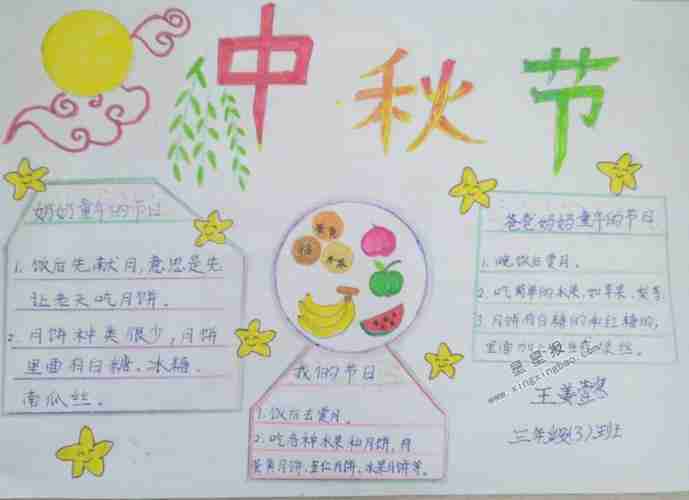 中秋节
奶奶童年的节日
1. 饭后先献月,意思是先
让老天吃月饼.
2. 月饼种类很少,月饼
里面有白糖、冰糖、
南瓜丝.
蛋黄
五仁
水果
我们的节日
1. 饭后去赏月.
2. 吃各种水果和月饼,有
蛋黄月饼、五仁月饼、水果月饼等.
爸爸妈妈童年的节日
1. 晚饭后赏月.
2. 吃简单的水果,如苹果、梨等
3. 月饼有白糖的和红糖的,
里面
丝.
星星报
www.xingxingbao.com
王姜
三年级(3)班